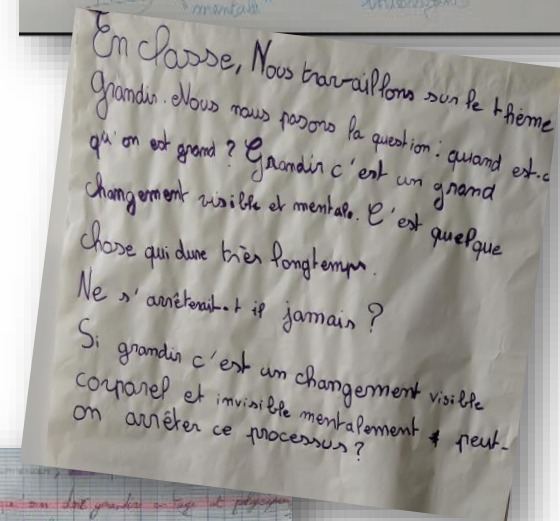 mentale"
En classe, Nous travaillons sur le thème
Grandir. Nous nous posons la question : quand est-c
qu'on est grand ? Grandir c'est un grand
changement visible et mentale. C'est quelque
chose qui dure très longtemps.
Ne s'arrêterait-t il jamais ?
Si grandir c'est un changement visible
corporel et invisible mentalement peut-
on arrêter ce processus ?